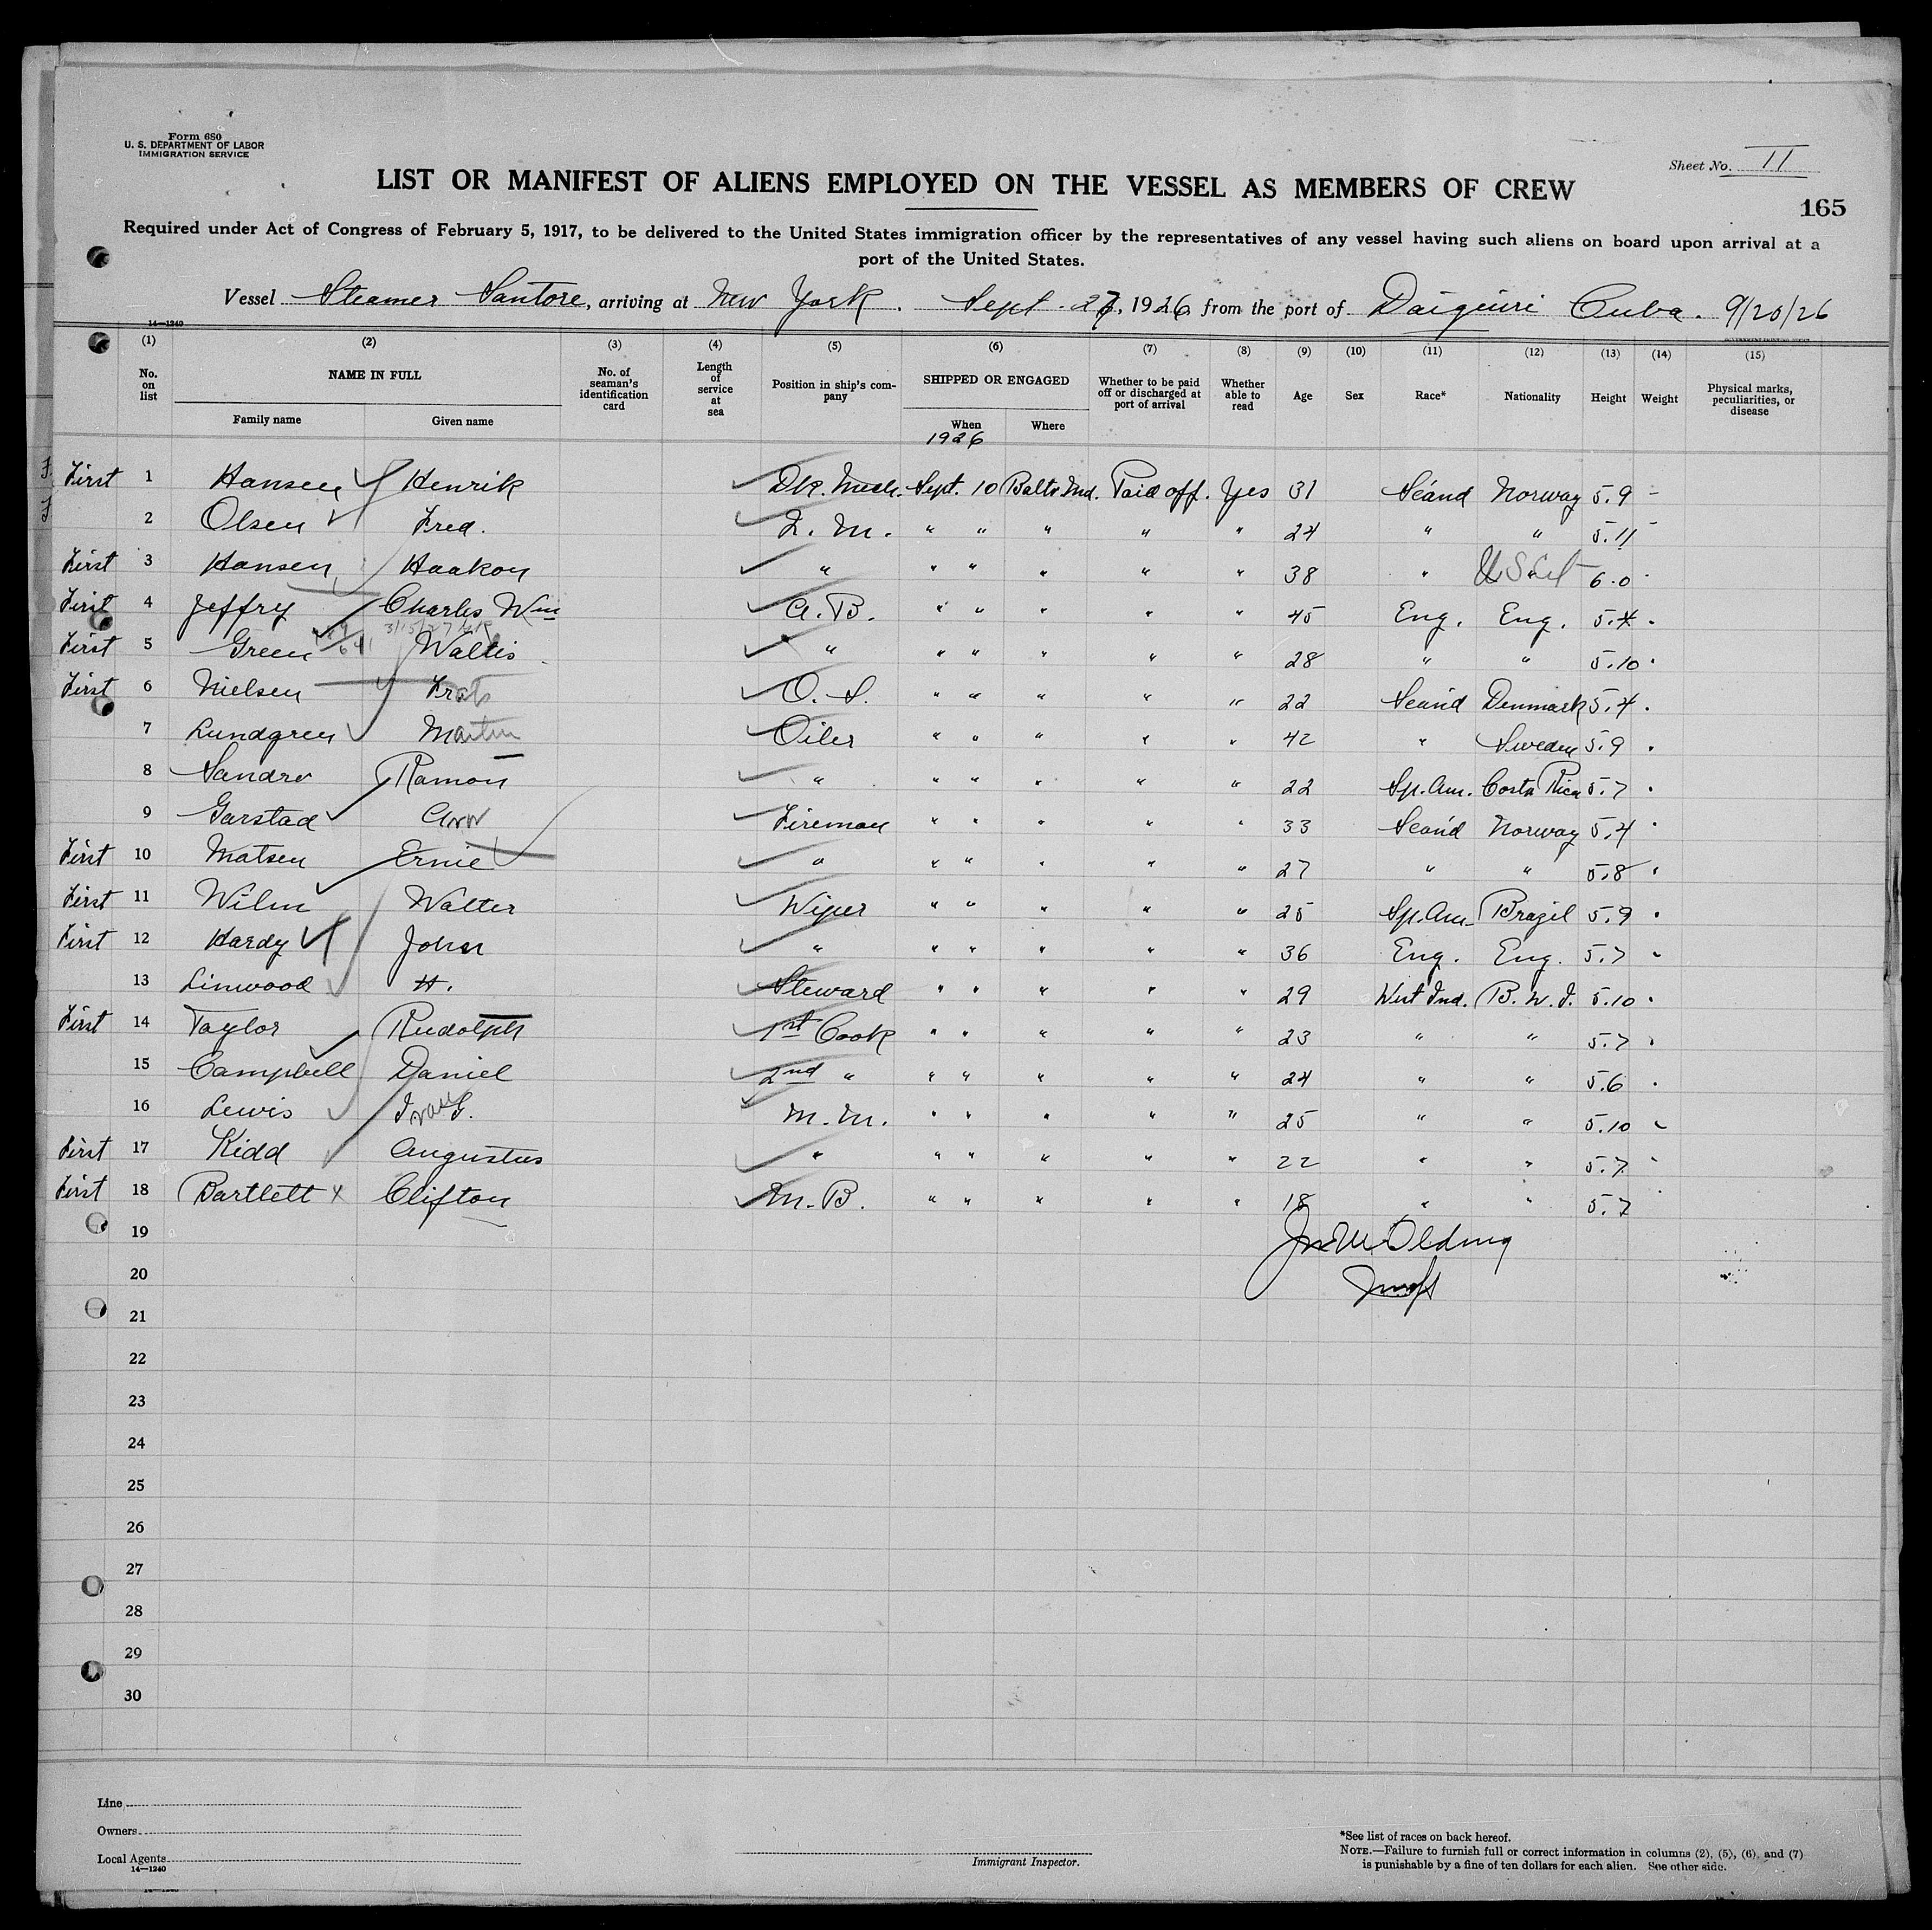 Form 680
U. S. DEPARTMENT OF LABOR
IMMIGRATION SERVICE
Sheet No. II
LIST OR MANIFEST OF ALIENS EMPLOYED ON THE VESSEL AS MEMBERS OF CREW
165
Required under Act of Congress of February 5, 1917, to be delivered to the United States immigration officer by the representatives of any vessel having such aliens on board upon arrival at a
port of the United States.
Vessel Steamer Santore, arriving at New York. Sept. 27, 1926, from the port of Daiquiri Cuba. 9/20/26
14—1240
(1) (2) (3) (4) (5) (6) (7) (8) (9) (10) (11) (12) (13) (14) (15)
No. on list NAME IN FULL No. of seaman's identification card Length of service at sea Position in ship's company SHIPPED OR ENGAGED Whether to be paid off or discharged at port of arrival Whether able to read Age Sex Race* Nationality Height Weight Physical marks, peculiarities, or disease
Family name Given name When Where
1926
First 1 Hansen Henrik Dk. Mech. Sept. 10 Balto Md. Paid off. Yes 31 Scand Norway 5.9 -
2 Olsen Fred. Q. M. " " " " " 24 " " 5.11 "
First 3 Hansen Haakon " " " " " " 38 " " US Cit 6.0 "
First 4 Jeffry Charles Wm A. B. " " " " " 45 Eng. Eng. 5.4 "
3/15/27
First 5 Green Waltis " " " " " " 28 " " 5.10 "
First 6 Nielsen O. S. " " " " " 22 Scand Denmark 5.4 "
7 Lundgren Martin Oiler " " " " " 42 " Sweden 5.9 "
8 Sandro Ramon " " " " " " 22 Sp. Am. Costa Rica 5.7 "
9 Garstad Fireman " " " " " 33 Scand Norway 5.4 "
First 10 Matsen Ernie " " " " " " 27 " " 5.8 "
First 11 Wilm Walter Wiper " " " " " 25 Sp. Am. Brazil 5.9 "
First 12 Hardy John " " " " " " 36 Eng. Eng. 5.7 "
13 Linwood H. Steward " " " " " 29 West Ind. B. W. I. 5.10 "
First 14 Taylor Rudolph 1st Cook " " " " " 23 " " 5.7 "
15 Campbell Daniel 2nd " " " " " " 24 " " 5.6 "
16 Lewis G. M. M. " " " " " 25 " " 5.10 "
First 17 Kidd Augustus " " " " " " 22 " " 5.7 "
First 18 Bartlett x Clifton M. B. " " " " " 18 " " 5.7
19
20
21
22
23
24
25
26
27
28
29
30
Line
Owners
Local Agents
14—1240
Immigrant Inspector.
*See list of races on back hereof.
NOTE.—Failure to furnish full or correct information in columns (2), (5), (6), and (7)
is punishable by a fine of ten dollars for each alien. See other side.